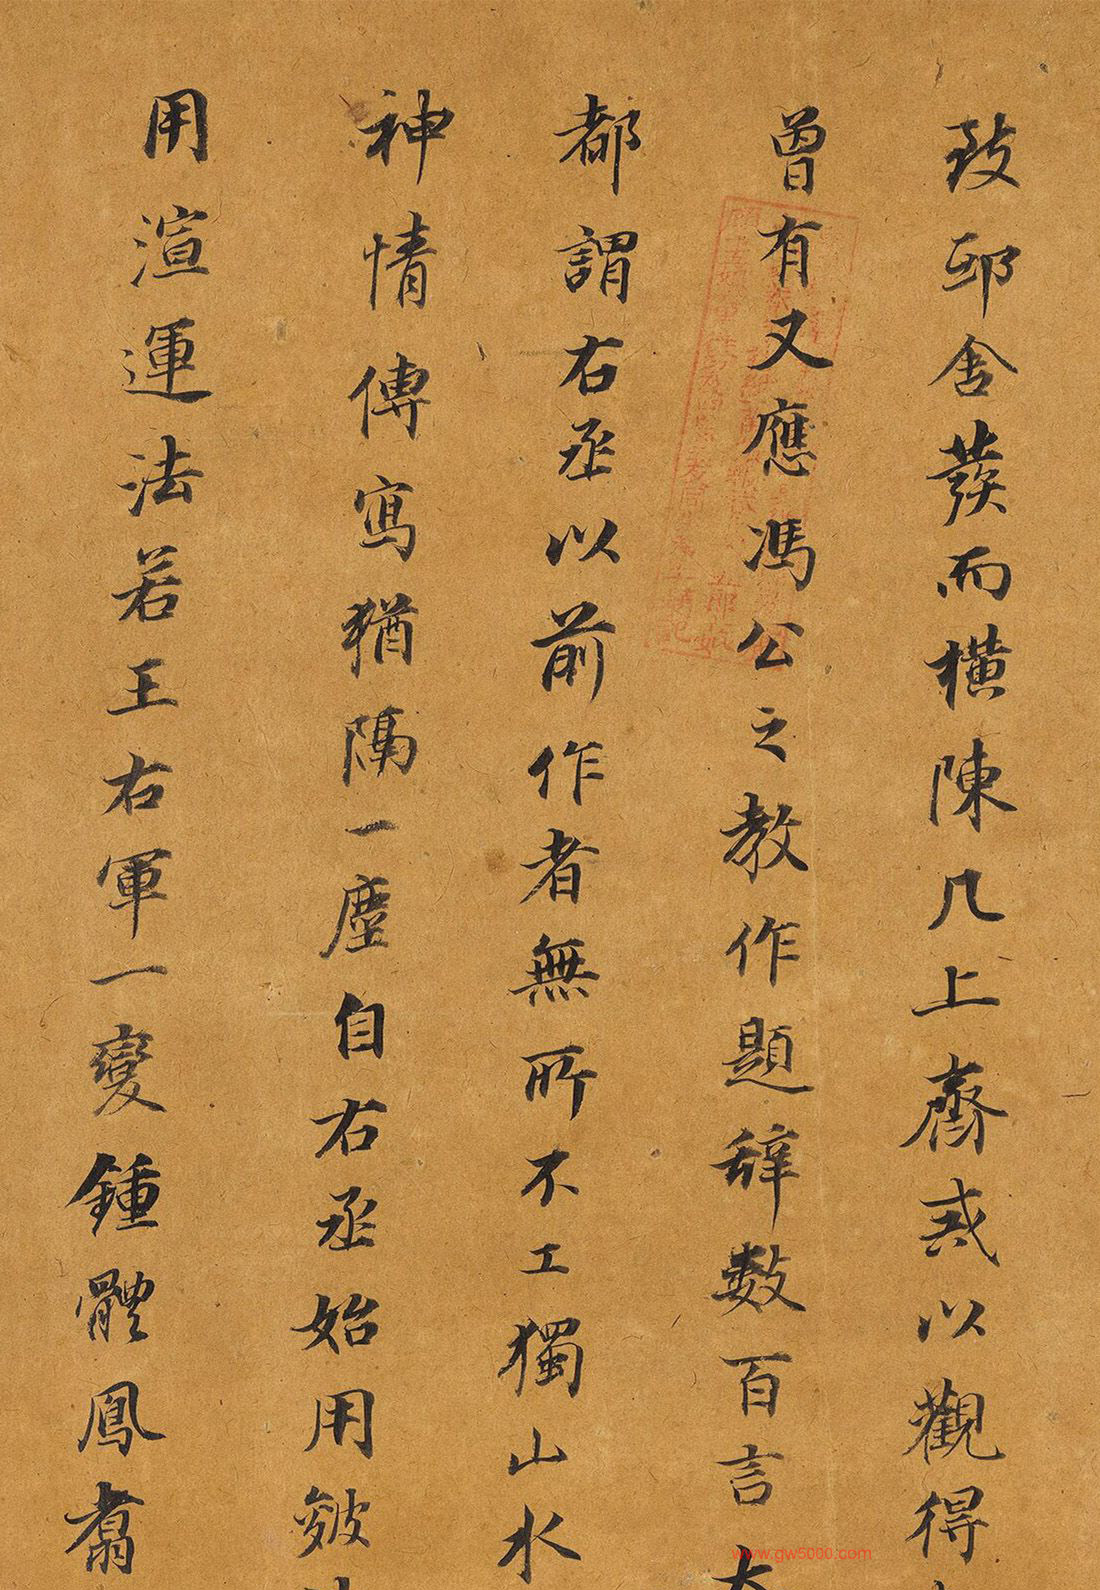 致邸舍發而橫陳几上齋戒以觀得
曾有又應馮公之教作題辭數百言大
都謂右丞以前作者無所不工獨山水
神情傳寫猶隔一塵自右丞始用皴
用渲運法若王右軍一變鍾體鳳翥
www.gw5000.com